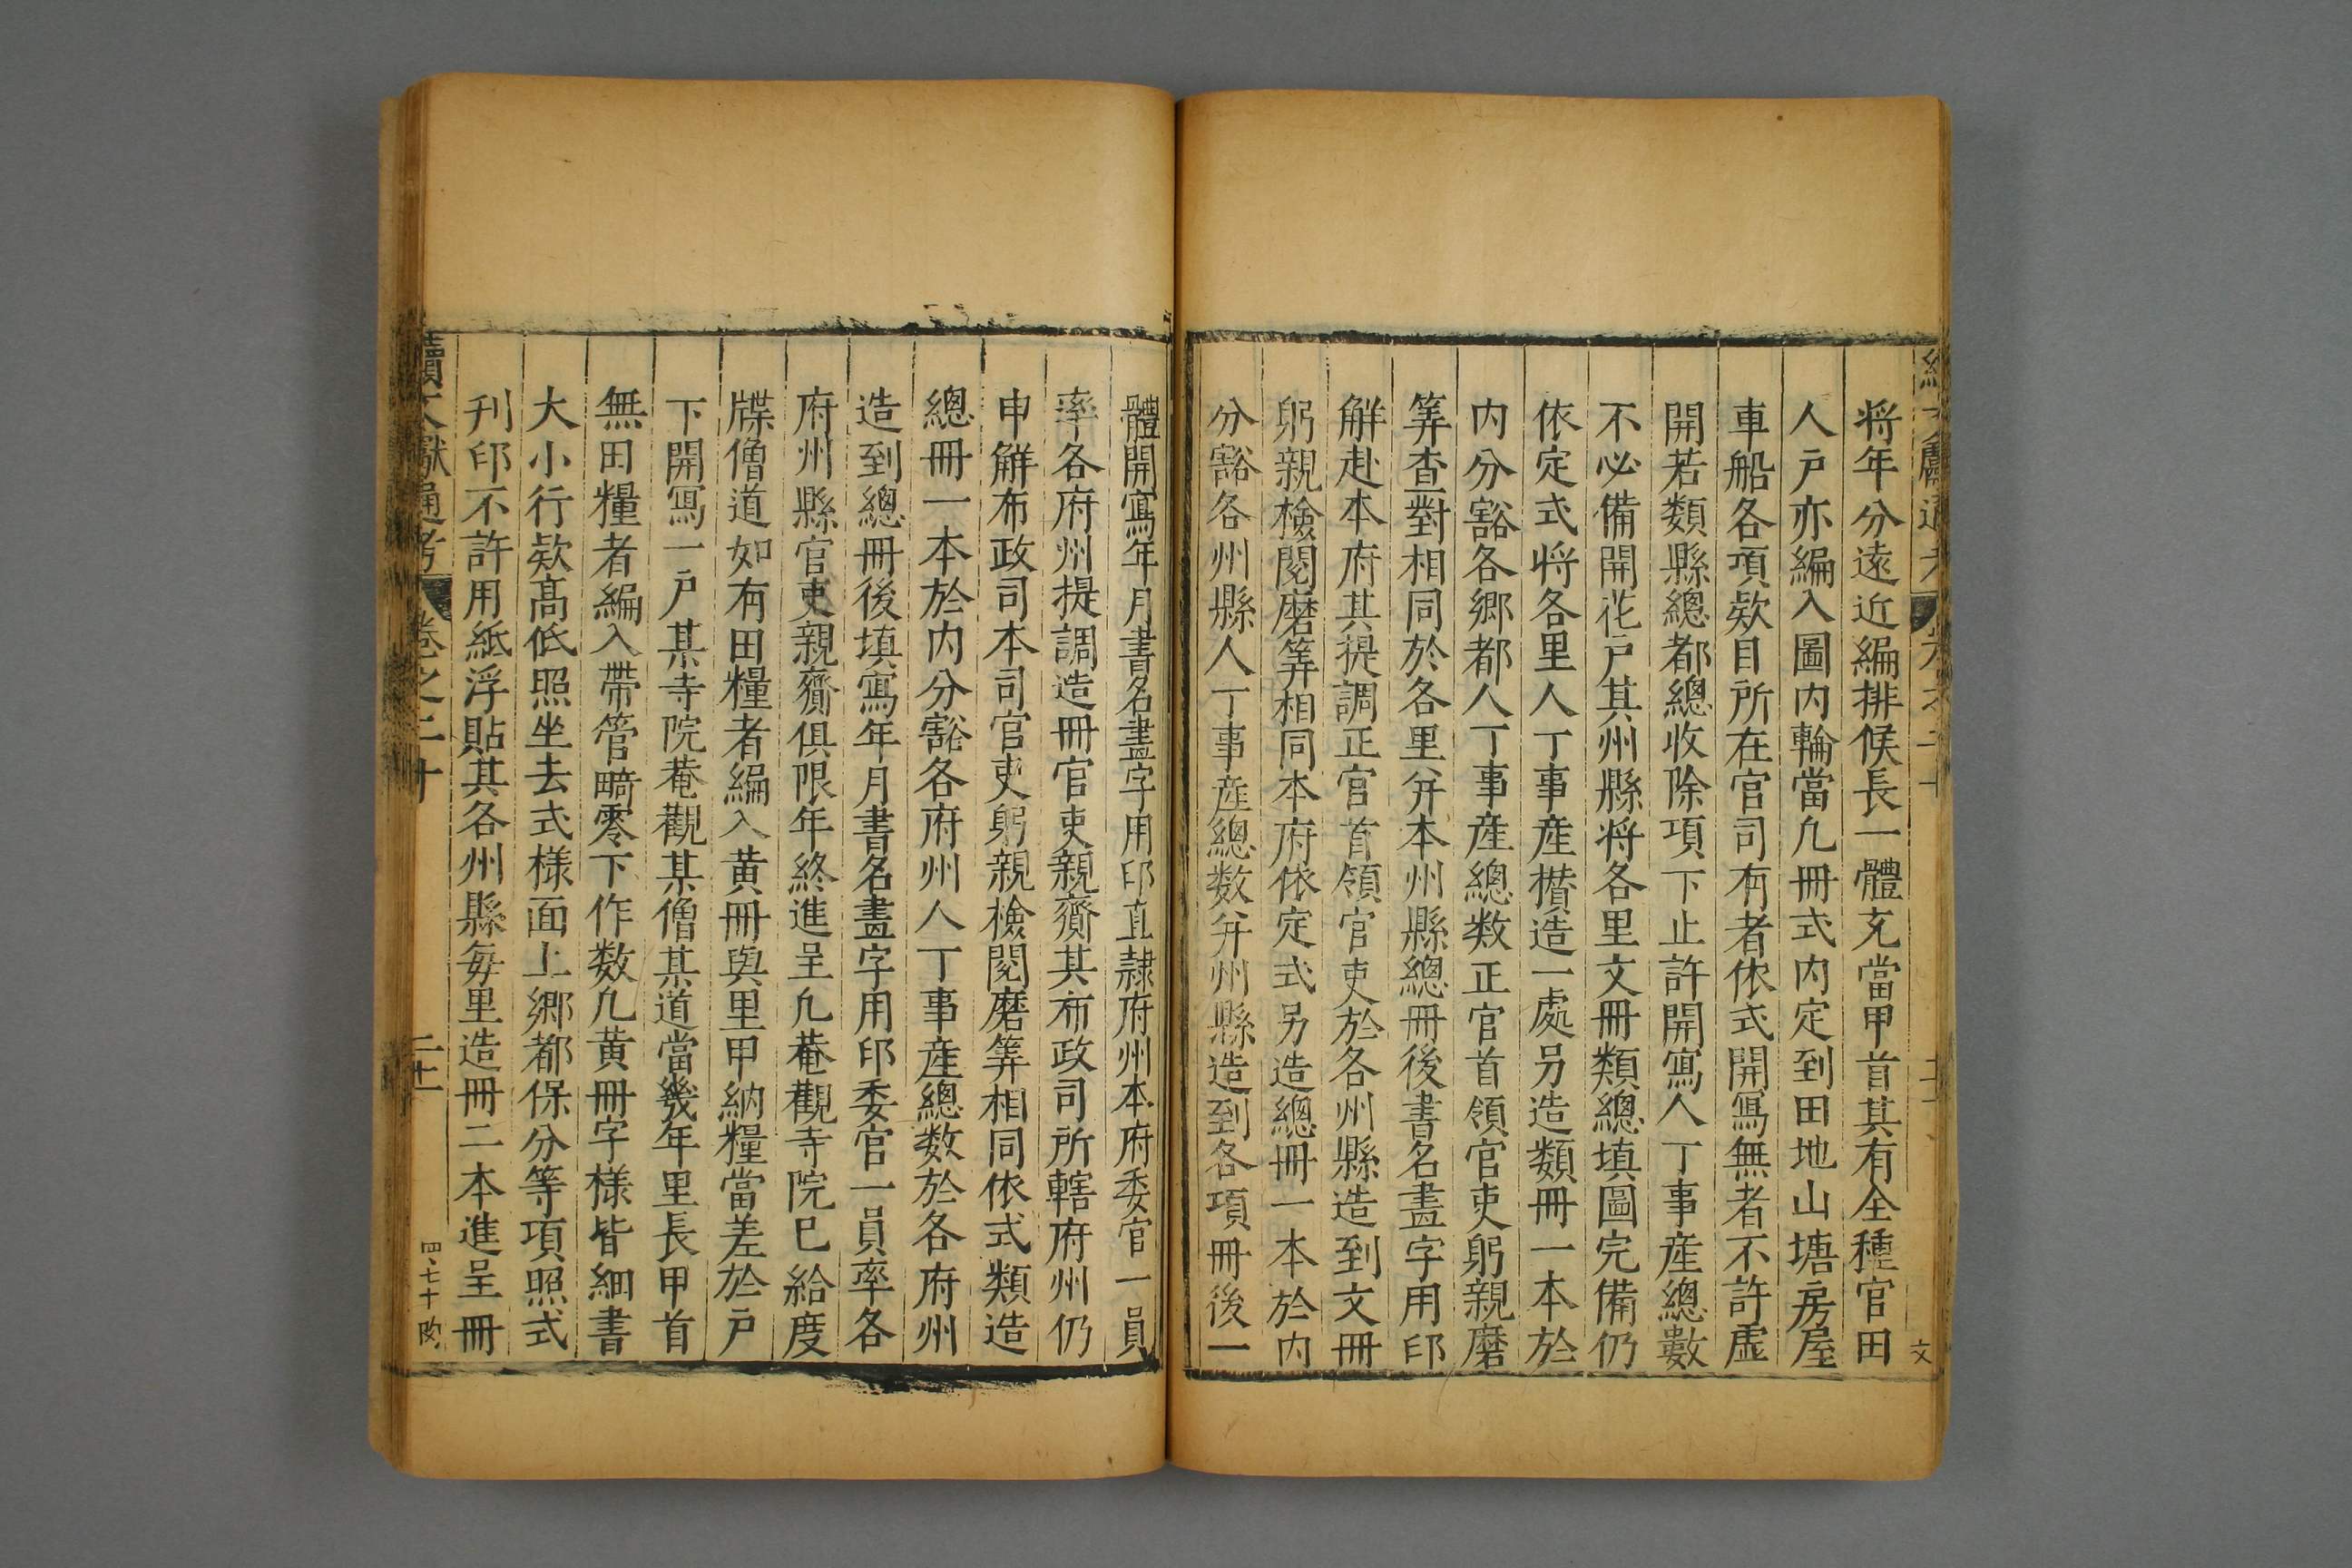 将年分遠近編排候長一體充當甲首其有全種官田
人户亦編入圖内輪當凢冊式内定到田地山塘房屋
車船各項欵目所在官司有者依式開寫無者不許虛
開若類縣總都總收除項下止許開寫人丁事産總數
不必備開花户其州縣將各里文冊類總填圖完備仍
依定式将各里人丁事産攢造一處另造類冊一本於
内分豁各鄉都人丁事産總数正官首領官吏躬親磨
筭查對相同於各里并本州縣總冊後書名畫字用印
觧赴本府其提調正官首領官吏於各州縣造到文冊
躬親檢閱磨筭相同本府依定式另造總冊一本於内
分豁各州縣人丁事産總数并州縣造到各項冊後一
體開寫年月書名畫字用印直隷府州本府委官一員
率各府州提調造冊官吏親齎其布政司所轄府州仍
申觧布政司本司官吏躬親檢閱磨筭相同依式類造
總冊一本於内分豁各府州人丁事産總数於各府州
造到總冊後填寫年月書名畫字用印委官一員率各
府州縣官吏親齎俱限年終進呈凢菴觀寺院已給度
牒僧道如有田糧者編入黄冊與里甲納糧當差於户
下開寫一户某寺院菴觀某僧某道當幾年里長甲首
無田糧者編入帶管畸零下作数凢黄冊字樣皆細書
大小行欵髙低照坐去式樣面上鄉都保分等項照式
刋印不許用紙浮貼其各州縣每里造冊二本進呈冊
續文獻通考 卷之二十 二十二